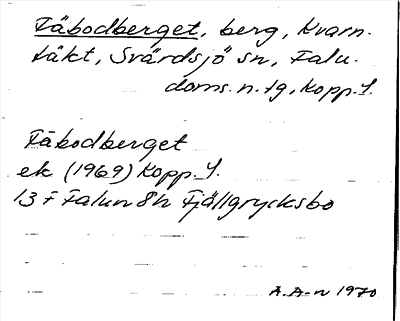 Fäbodberget, berg, Kvarn-
täkt, Svärdsjö sn, Falu-
doms. n. tg, Kopp. l.
Fäbodberget
ek (1969) Kopp. l.
13 F Falun 8h Fjällgrycksbo
A.A-n 1970